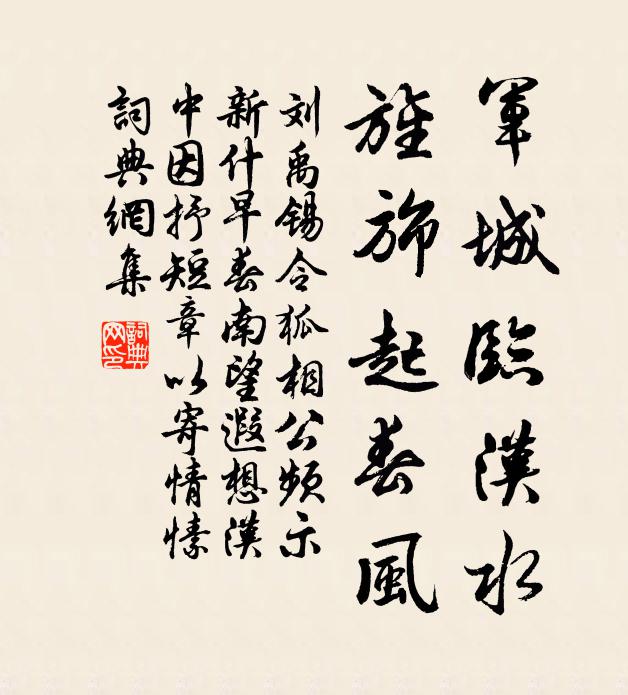 軍城臨漢水
旌旆起春風
刘禹锡令狐相公频示
新什早春南望遐想漢
中因抒短章以寄情愫
詞典網集
詞典網印